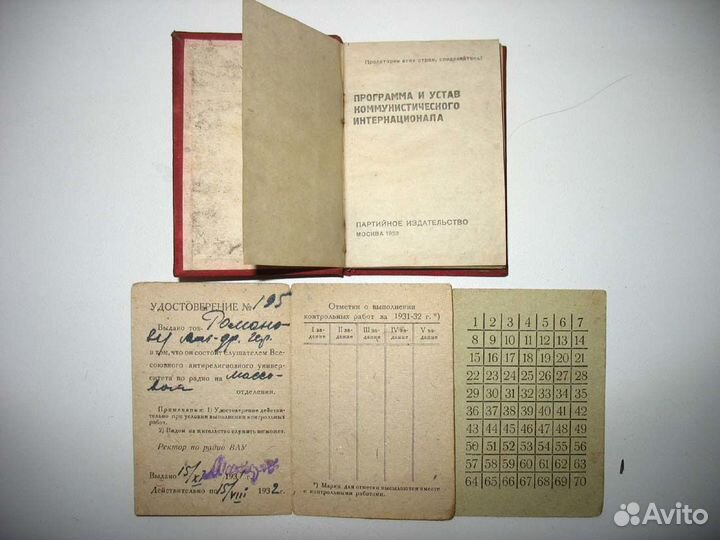 Пролетарии всех стран, соединяйтесь!
ПРОГРАММА И УСТАВ
КОММУНИСТИЧЕСКОГО
ИНТЕРНАЦИОНАЛА
ПАРТИЙНОЕ ИЗДАТЕЛЬСТВО
МОСКВА 1933
УДОСТОВЕРЕНИЕ № 195
Выдано тов. Романо-
в том, что он состоит слушателем Все-
союзного антирелигиозного универ-
ситета по радио на массо-
вом отделении.
Примечания: 1) Удостоверение действи-
тельно при условии выполнения контрольных
работ.
2) Видом на жительство служить не может.
Ректор по радио ВАУ
Выдано 15/XI 1931 г.
Действительно по 15/VIII 1932 г.
Отметки о выполнении
контрольных работ за 1931-32 г. *)
I за-
дание
II за-
дание
III за-
дание
IV за-
дание
V за-
дание
*) Марки для отметки высылаются вместе
с контрольными работами.
1 2 3 4 5 6 7
8 9 10 11 12 13 14
15 16 17 18 19 20 21
22 23 24 25 26 27 28
29 30 31 32 33 34 35
36 37 38 39 40 41 42
43 44 45 46 47 48 49
50 51 52 53 54 55 56
57 58 59 60 61 62 63
64 65 66 67 68 69 70
Avito